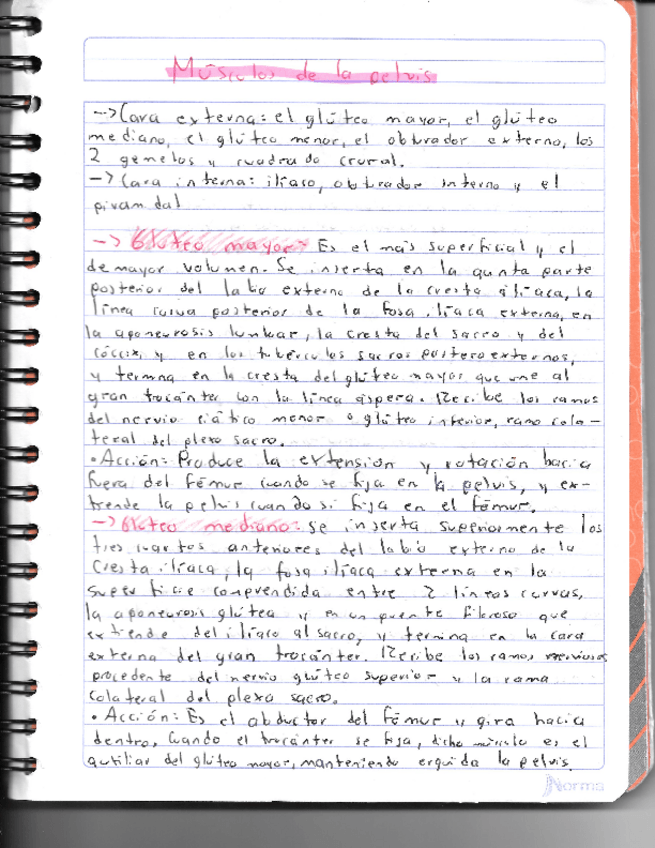 Músculos de la pelvis
-> Cara externa: el glúteo mayor, el glúteo
mediano, el glúteo menor, el obturador externo, los
2 gemelos y cuadrado crural.
-> Cara interna: ilíaco, obturador interno y el
piramidal
-> Glúteo mayor: Es el más superficial y el
de mayor volumen. Se inserta en la quinta parte
posterior del labio externo de la cresta ilíaca, la
línea curva posterior de la fosa ilíaca externa, en
la aponeurosis lumbar, la cresta del sacro y del
cóccix, y en los tubérculos sacros posteroexternos,
y termina en la cresta del glúteo mayor que une al
gran trocánter con la línea áspera. Recibe los ramos
del nervio ciático menor o glúteo inferior, ramo cola-
teral del plexo sacro.
• Acción: Produce la extensión y rotación hacia
fuera del fémur cuando se fija en la pelvis, y ex-
tiende la pelvis cuando si fija en el fémur.
-> Glúteo mediano: se inserta superiormente los
tres cuartos anteriores del labio externo de la
cresta ilíaca, la fosa ilíaca externa en la
superficie comprendida entre 2 líneas curvas,
la aponeurosis glútea y en un puente fibroso que
extiende del ilíaco al sacro, y termina en la cara
externa del gran trocánter. Recibe los ramos nerviosos
procedente del nervio glúteo superior y la rama
colateral del plexo sacro.
• Acción: Es el abductor del fémur y gira hacia
dentro, Cuando el trocánter se fija, dicho músculo es el
auxiliar del glúteo mayor, manteniendo erguida la pelvis.
Norma